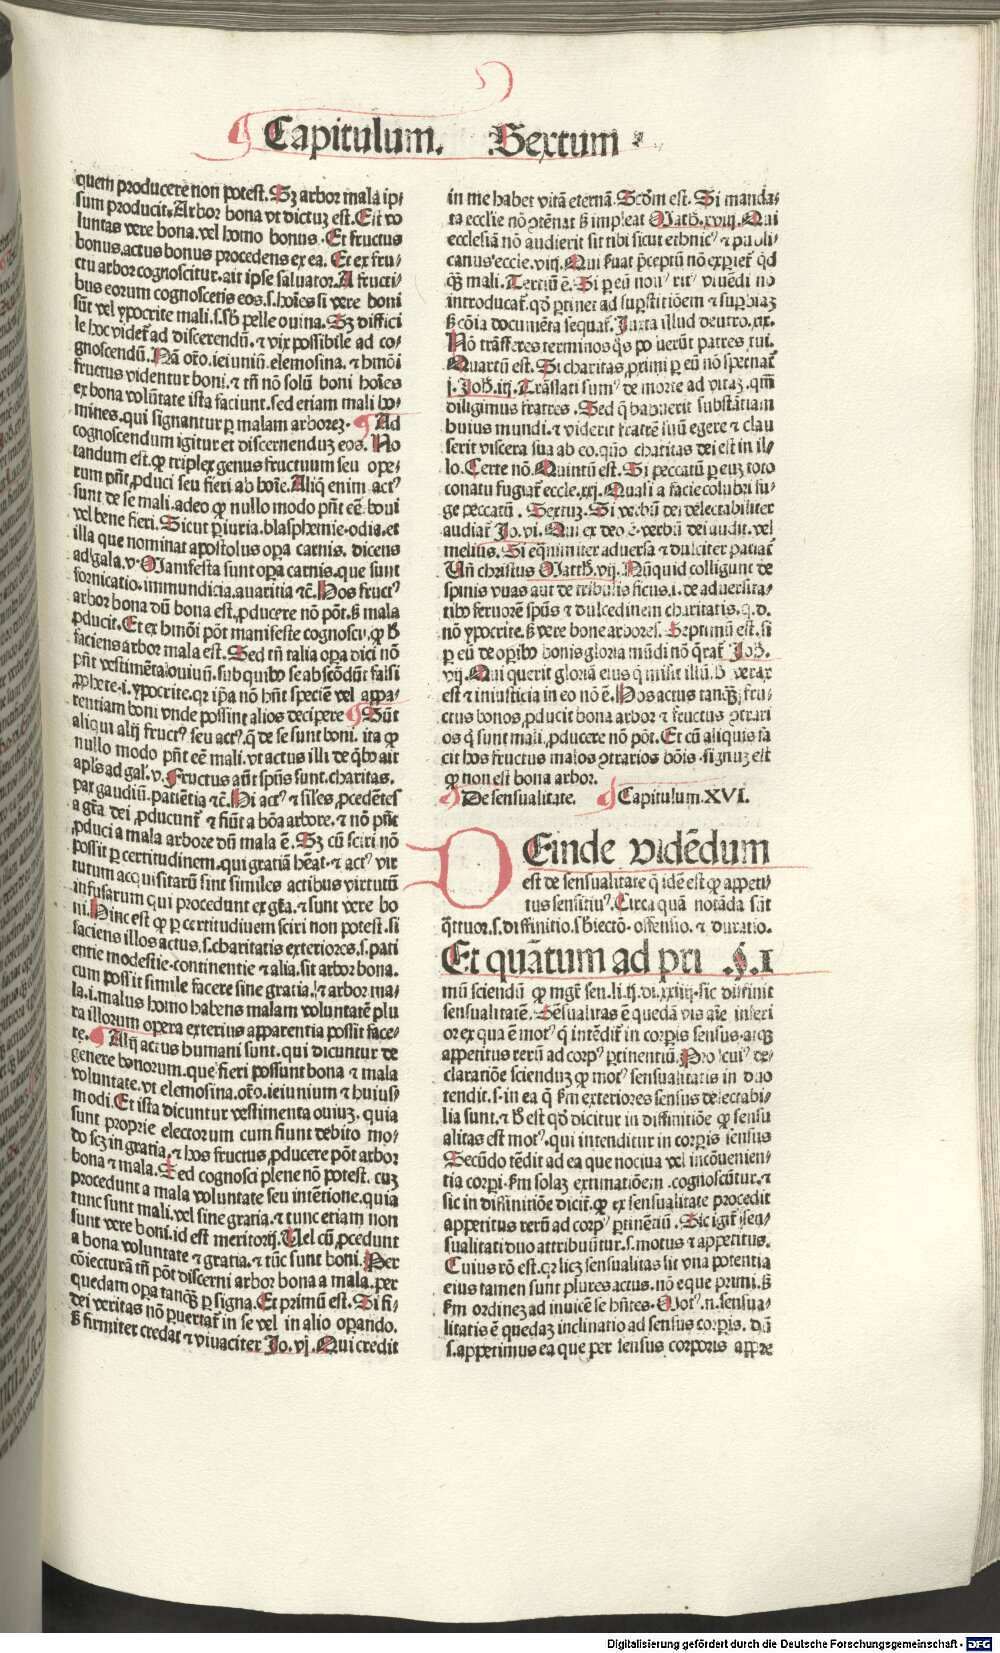 Capitulum. Sextum
quem producere non potest. Sꝫ arbor mala ip⸗
sum producit. Arbor bona vt dictuꝫ est. Est vo
luntas vere bona. vel homo bonus. Et fructus
bonus. actus bonus procedens ex ea. Et ex fru⸗
ctu arbor cognoscitur. ait ipse saluator. A fructi⸗
bus eorum cognoscetis eos. s. hoīes si vere boni
sūt vel ypocrite mali. s. sb̄ pelle ouina. Sꝫ diffici
le hoc videt᷑ ad discerendū. ⁊ vix possibile ad co⸗
gnoscendū. Nā oro. ieiuniū. elemosina. ⁊ hmōi
fructus videntur boni. ⁊ tn̄ nō solū boni hoīes
ex bona volūtate ista faciunt. sed etiam mali ho⸗
mines. qui signantur ꝑ malam arboreꝫ. Ad
cognoscendum igitur et discernenduꝫ eos. No
tandum est. ꝙ triplex genus fructuum seu ope⸗
rum pn̄t ꝓduci seu fieri ab hoīe. Aliqͥ enim actꝰ
sunt de se mali. adeo ꝙ nullo modo pn̄t eē boni
vel bene fieri. Sicut ꝑiuria. blasphemie. odia. et
illa que nominat apostolus oꝑa carnis. dicens
ad gala. v. Manifesta sunt oꝑa carnis. que sunt
fornicatio. immundicia. auaritia ⁊c̄. Hos fructꝰ
arbor bona dū bona est. ꝓducere nō pōt. sꝫ mala
ꝓducit. Et ex hmōi pōt manifeste cognosci. ꝙ h̄
faciens arbor mala est. Sed tn̄ talia oꝑa dici nō
pn̄t vestimēta ouiuū. sub quibꝰ se abscōdūt falsi
ꝓphete. i. ypocrite. qꝛ ip̄a nō hn̄t speciē vel appa⸗
rentiam boni vnde possint alios decipere Sūt
aliqui alij fructꝰ seu actꝰ. q̄ de se sunt boni. ita ꝙ
nullo modo pn̄t eē mali. vt actus illi de qͥbꝰ ait
apl̄s ad gal. v. Fructus aūt spūs sunt. charitas.
pax gaudiū. patiētia ⁊c̄. Hi actꝰ ⁊ sil̄es ꝓcedētes
a gr̄a dei ꝓducunt᷑ ⁊ fiūt a bōa arbore. ⁊ nō pn̄t
ꝓduci a mala arbore dū mala ē. Sꝫ cū sciri nō
possit ꝑ certitudinem. qui gratiā hēat. ⁊ actꝰ vir
tutum acquisitarū sint similes actibus virtutū
infusarum qui procedunt ex gr̄a. ⁊ sunt vere bo
ni. Hinc est ꝙ ꝑ certitudinem sciri non potest. si
faciens illos actus. s. charitatis exteriores. s. pati
entie modestie. continentie ⁊ alia. sit arbor bona.
cum possit simile facere sine gratia. ⁊ arbor ma⸗
la. i. malus homo habens malam voluntatē plu
ra illorum opera exterius apparentia possit face⸗
re. Alij actus humani sunt. qui dicuntur de
genere bonorum. que fieri possunt bona ⁊ mala
voluntate. vt elemosina. oro. ieiunium ⁊ huius⸗
modi. Et ista dicuntur vestimenta ouiuꝫ. quia
sunt proprie electorum cum fiunt debito mo⸗
do scꝫ in gratia. ⁊ hos fructus ꝓducere pōt arbor
bona ⁊ mala. Sed cognosci plene nō potest. cuꝫ
procedunt a mala voluntate seu intētione. quia
tunc sunt mali. vel sine gratia. ⁊ tunc etiam non
sunt vere boni. id est meritorij. Uel cū ꝓcedunt
a bona voluntate ⁊ gratia. ⁊ tūc sunt boni. Per
cōiecturā tn̄ pōt discerni arbor bona a mala. per
quedam oꝑa tanqꝫ ꝑ signa. Et primū est. Si fi⸗
dei veritas nō ꝑuertat᷑ in se vel in alio oꝑando.
sꝫ firmiter credat ⁊ viuaciter Jo. vj. Qui credit
in me habet vitā eternā. Scd̄m est. Si manda⸗
ta eccl̄ie nō ꝯtēnat sꝫ impleat Math. xviij. Qui
ecclesiā nō audierit sit tibi sicut ethnicꝰ ⁊ publi⸗
canus. eccle. viij. Qui ẜuat p̄ceptū nō exꝑiet᷑ qͥd
qͣꝫ mali. Tertiū ē. Si ꝑ eū nouꝰ ritꝰ viuēdi nō
introducat᷑. qd̓ ꝑtinet ad suꝑstitiōem ⁊ suꝑbiaꝫ
sꝫ cōia documēta sequat᷑. Juxta illud deutro. xix.
Nō trāsf̄eres terminos qͦs posuerūt patres tui.
Quartū est. Si charitas ꝓximi ꝑ eū nō spernat᷑
j. Joh. iij. Trāslati sumꝰ de morte ad vitaꝫ. qm̄
diligimus fratres. Sed qͥ habuerit substātiam
huius mundi. ⁊ viderit fratrē suū egere ⁊ clau
serit viscera sua ab eo. quō charitas dei est in il⸗
lo. Certe nō. Quintū est. Si peccatū ꝑ euꝫ toto
conatu fugiat᷑ eccle. xxj. Quasi a facie colubri fu⸗
ge peccatū. Sextuꝫ. Si verbū dei delectabiliter
audiat᷑ Jo. vi. Qui ex deo ē verbū dei audit. vel
melius. Si eq̄nimiter aduersa ⁊ dulciter patiat᷑
Un̄ christus Matth. vij. Nūquid colligunt de
spinis vuas aut de tribulis ficus. i. de aduersita⸗
tibꝰ feruorē spūs ⁊ dulcedinem charitatis. q. d.
nō ypocrite. sꝫ vere bone arbores. Septimū est. si
ꝑ eū de oꝑibꝰ bonis gloria mūdi nō q̄rat᷑ Joh.
vij. Qui querit gloriā eius qͥ misit illū. h̓ verax
est ⁊ iniusticia in eo nō ē. Hos actus tanqꝫ fru⸗
ctus bonos ꝓducit bona arbor ⁊ fructus ꝯtrari
os qͥ sunt mali ꝓducere nō pōt. Et cū aliquis fa
cit hos fructus malos ꝯtrarios bōis. signuꝫ est
ꝙ non est bona arbor.
De sensualitate. Capitulum. XVI.
Deinde vidēdum
est de sensualitate q̄ idē est ꝙ appeti⸗
tus sensitiuꝰ. Circa quā notāda sūt
q̄ttuor. s. diffinitio. sb̓iectō. offensio. ⁊ duratio.
Et quātum ad pri .§. I
mū sciendū ꝙ mgr̄ sen. li. ij. di. xxiiij. sic diffinit
sensualitatē. Sēsualitas ē quedā vis aīe inferi
or ex qua ē motꝰ qͥ intēdit᷑ in corꝑis sensus. atqꝫ
appetitus rerū ad corpꝰ ꝑtinentiū. Pro cuiꝰ de⸗
claratiōe scienduꝫ ꝙ motꝰ sensualitatis in duo
tendit. s. in ea qͥ ẜm exteriores sensus delectabi⸗
lia sunt. ⁊ h̓ est qd̓ dicitur in diffinitiōe ꝙ sensu
alitas est motꝰ. qui intenditur in corꝑis sensus
Secūdo tēdit ad ea que nociua vel incōuenien⸗
tia corꝑi. ẜm solaꝫ extimatiōem. cognoscūtur. ⁊
sic in diffinitiōe dicit᷑. ꝙ ex sensualitate procedit
appetitus rerū ad corpꝰ ꝑtinētiū. Sic igit᷑ sen⸗
sualitati duo attribuūtur. s. motus ⁊ appetitus.
Cuius rō est. qꝛ licꝫ sensualitas sit vna potentia
eius tamen sunt plures actus. nō eque primi. sꝫ
ẜm ordineꝫ ad inuicē se hn̄tes. Motꝰ. n. sensua⸗
litatis ē quedaꝫ inclinatio ad sensus corꝑis. dū
.s. appetimus ea que per sensus corporis appre
Digitalisierung gefördert durch die Deutsche Forschungsgemeinschaft - DFG